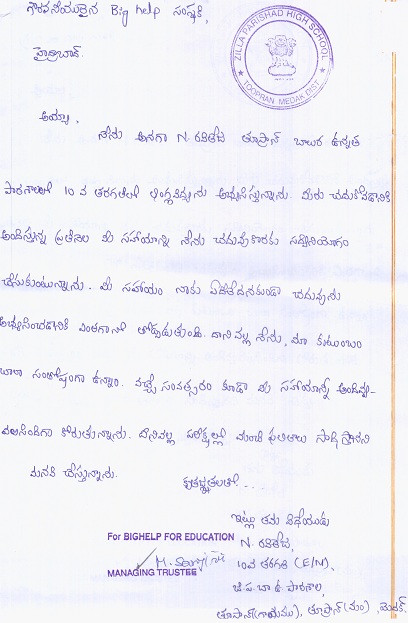 గౌరవనీయులైన Big help సంస్థకి,
హైద్రాబాద్.
ZILLA PARISHAD HIGH SCHOOL
TOOPRAN MEDAK DIST
అయ్యా,
నేను అనగా N. రవితేజ తూప్రాన్ బాలుర ఉన్నత
పాఠశాలలో 10 వ తరగతిలో అభ్యసిస్తున్నాను. మీరు చదుకోవడానికి
అందిస్తున్న ప్రతినెల మీ సహాయాన్ని నేను చదువుకొరకు సద్వినియోగం
చేసుకుంటున్నాను. మీ సహాయం నాకు చదువును
అభ్యసించడానికి ఎంతగానో తోడ్పడుతుంది. దానివల్ల నేను, మా కుటుంబం
చాలా సంతోషంగా ఉన్నాం. వచ్చే సంవత్సరం కూడా మీ సహాయాన్ని అందివ్వ-
వలసిందిగా కోరుతున్నాను. దీనివల్ల పరీక్షల్లో మంచి ఫలితాలు సాధిస్తానని
మనవి చేస్తున్నాను.
కృతజ్ఞతలతో...
ఇట్లు తమ విధేయుడు
N. రవితేజ,
10వ తరగతి (E/M),
జి.ప.బా.ఉ పాఠశాల,
తూప్రాన్(గ్రామము), తూప్రాన్(మం), మెదక్.
For BIGHELP FOR EDUCATION
MANAGING TRUSTEE